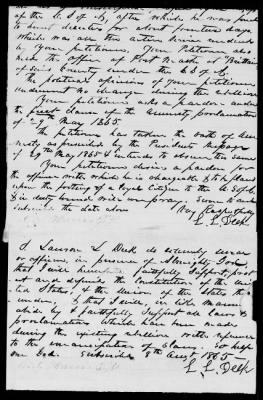 of the C. S. of A, after which he was put
to detail direction for about fourteen days
Which was all the action service rendered
by Your petitioner. Your Petitioner also
held the office of Post Master at Brittain
of said County under the C. S. of A.
The political opinions of your petitioner
underwent no change during the rebellion
Your petitioner asks a pardon under
the first clause of the Amnesty proclamation
of 29th May 1865
The petitioner has taken the oath of Am-
nesty as prescribed by the Presidents Message
of 29 May 1865 & intends to observe the same
Your petitioner desires a pardon for
the offence with which he is chargeable & to be placed
upon the footing of a Loyal Citizen to the U. S. of A.
& in duty bound will ever pray, Sworn to and
subscribed the date above
Very Respectfully
L. L. Deck
I Lawson L Deck do solemnly swear
or affirm, in presence of Almighty God
that I will henceforth faithfully Support, prot-
ect and defend the Constitution of the Uni-
ted States, & the Union of the States the-
under, & that I will, in like Manner
abide by & faithfully Support all laws &
proclamations Which have been made
during the existing rebellion with reference
to the emancipation of Slaves, So help
me God. Subscribed 8th Augt 1865
L. L. Deck